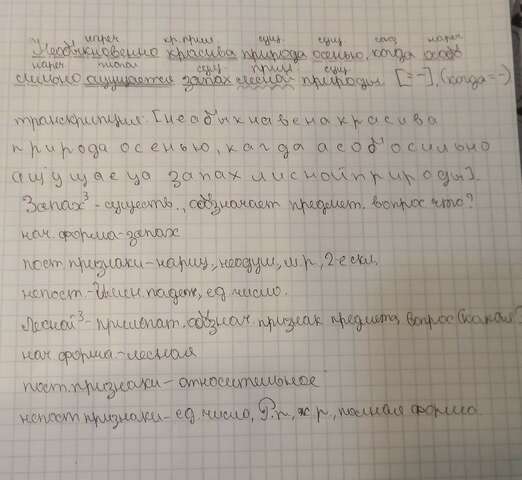 нареч кр.прил сущ сущ союз нареч
Необыкновенно красива природа осенью, когда особо
нареч глагол сущ прил сущ
сильно ощущается запах лесной природы. [= -], (когда = -)
транскрипция. [необыкнавенакрасива
природаосенью, кагдаасобосильно
ащущаеца запахлиснойприроды].
Запах³ - существ., обозначает предмет. вопрос что?
нач. форма - запах
пост. признаки - нариц, неодуш, м.р, 2-е скл.
непост. - Имен. падеж, ед. число.
Лесной³ - прилагат. обознач. признак предмета, вопрос (какая?
нач форма - лесная
пост. признаки - относительное
непост признаки - ед. число, Р.п, ж.р, полная форма.